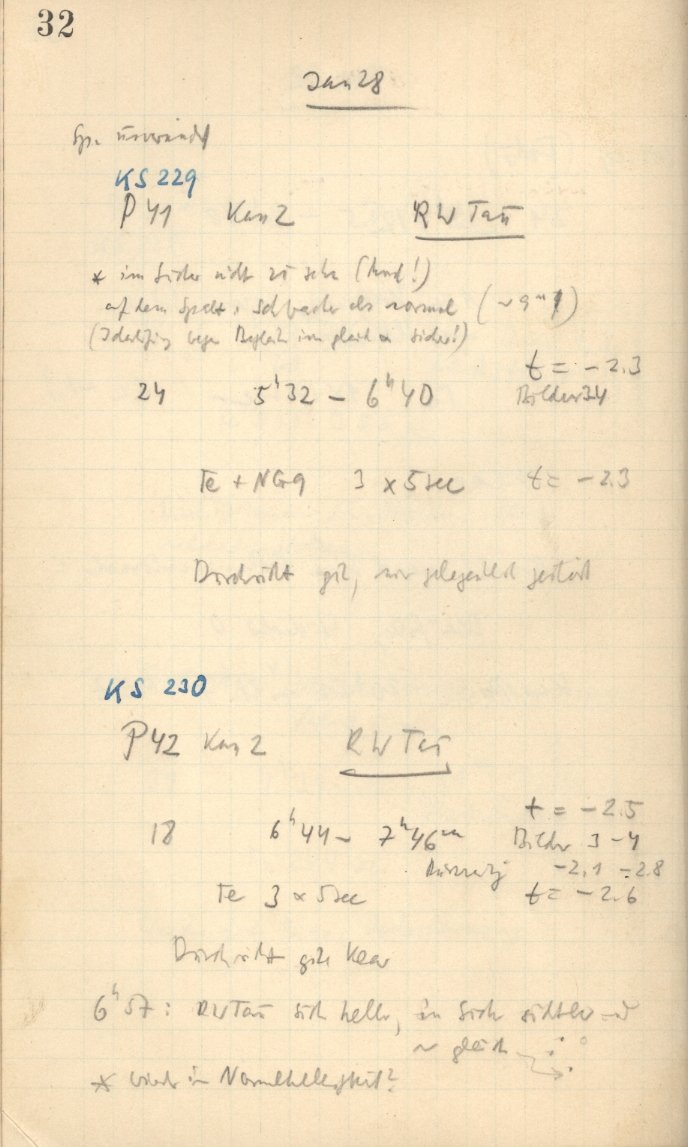 32
Jan 28
Sp.
KS 229
P 41 Kan 2 RW Tau
* im Sucher nicht zu sehn (Mond!)
auf dem Spalt schwächer als normal (~9ᵐ)
(Identifizg wegen im gleich Sucher!)
t = -2.3
24 5ʰ32 - 6ʰ40 Bilder 3-4
Te + NG9 3 x 5 sec t = -2.3
Durchsicht gut, nur gelegentlich gestört
KS 230
P 42 Kan 2 RW Tau
t = -2.5
18 6ʰ44 - 7ʰ46ᵐ Bilder 3-4
-2.1 -2.8
Te 3 x 5 sec t = -2.6
Durchsicht gut klar
6ʰ57: RW Tau heller, im Sucher sichtbar und
~ gleich
* wieder in Normalhelligkeit?